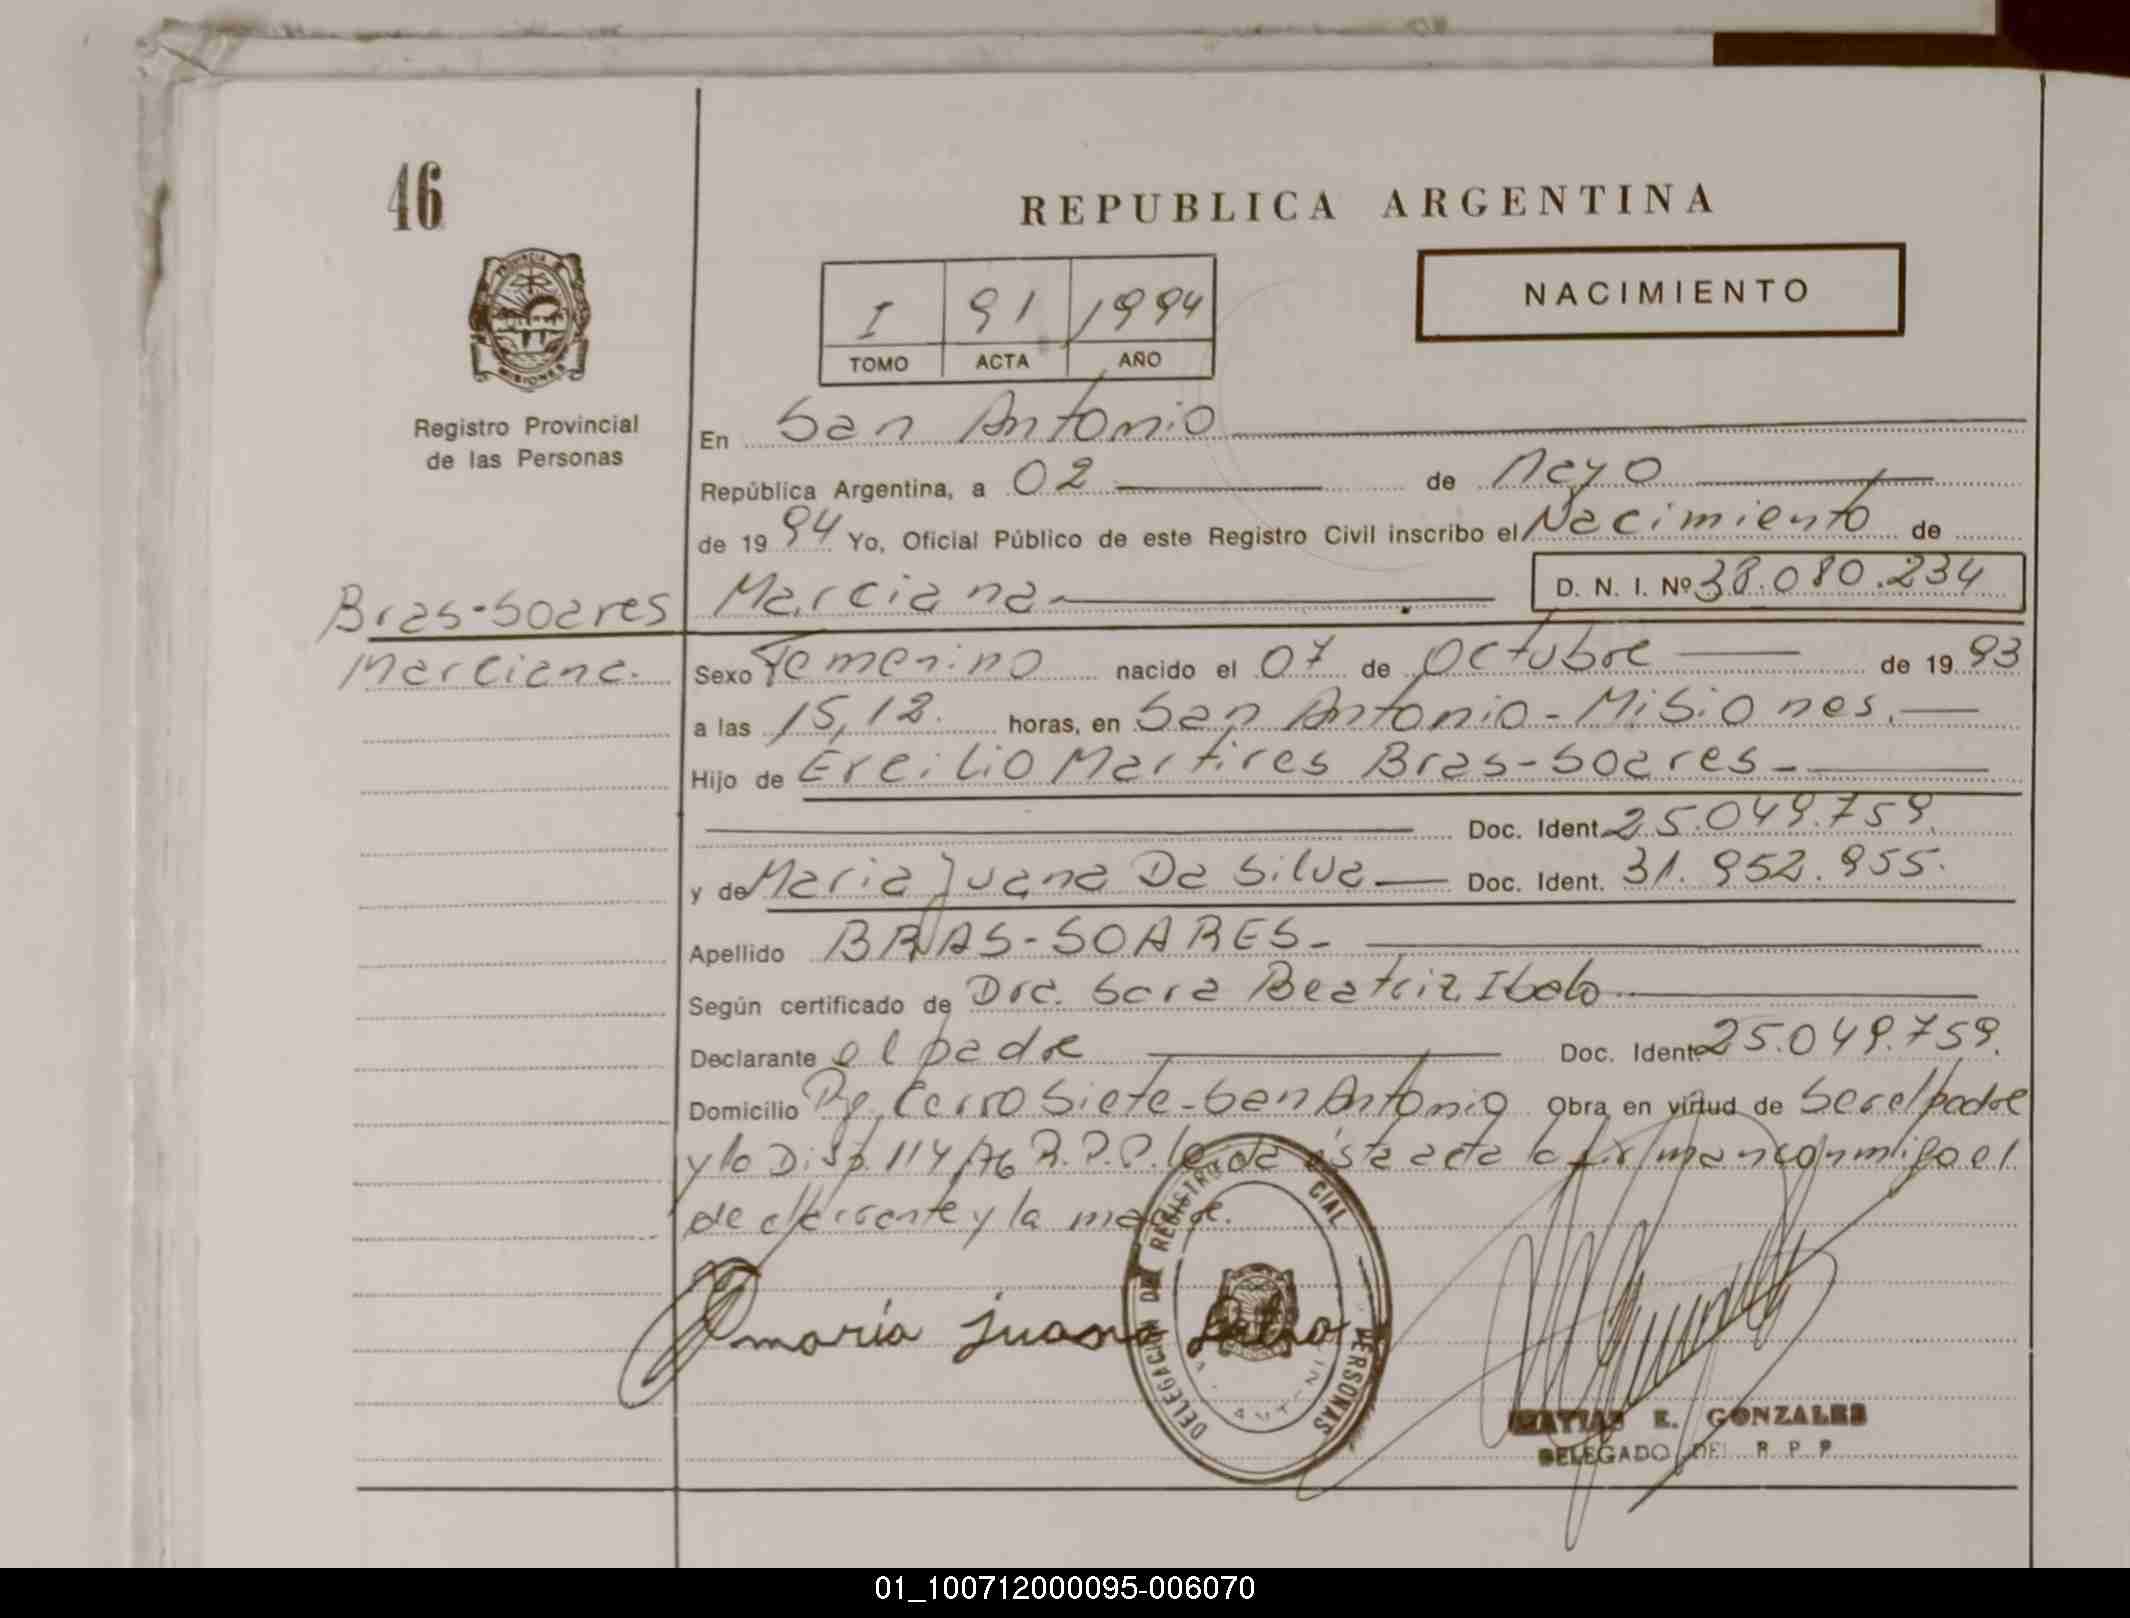 46
REPUBLICA ARGENTINA
PROVINCIA D
MISIONES
I 91 1994
TOMO ACTA AÑO
NACIMIENTO
Registro Provincial
de las Personas
En San Antonio
República Argentina, a 02 de Mayo
de 1994 Yo, Oficial Público de este Registro Civil inscribo el Nacimiento de
Bras-Soares
Marciana
D. N. I. Nº 38.080.234
Marciana.
Sexo Femenino nacido el 07 de Octubre de 1993
a las 15,12. horas, en San Antonio - Misiones.
Hijo de Ercilio Martires Bras-Soares -
Doc. Ident. 25.049.759.
y de Maria Juana Da Silva Doc. Ident. 31.952.955.
Apellido BRAS-SOARES-
Según certificado de Dra. Sara Beatriz
Declarante el padre Doc. Ident 25.049.759.
Domicilio Cerro Siete - San Antonio Obra en virtud de Ser el padre
y la Disp. 114/76 R.P.P. ésta acta la firman conmigo el
declarante y la madre.
maria juana
DELEGACION DEL REGISTRO CIAL PERSONAS
MATIAS E. GONZALES
DELEGADO DEL R P P
01_100712000095-006070